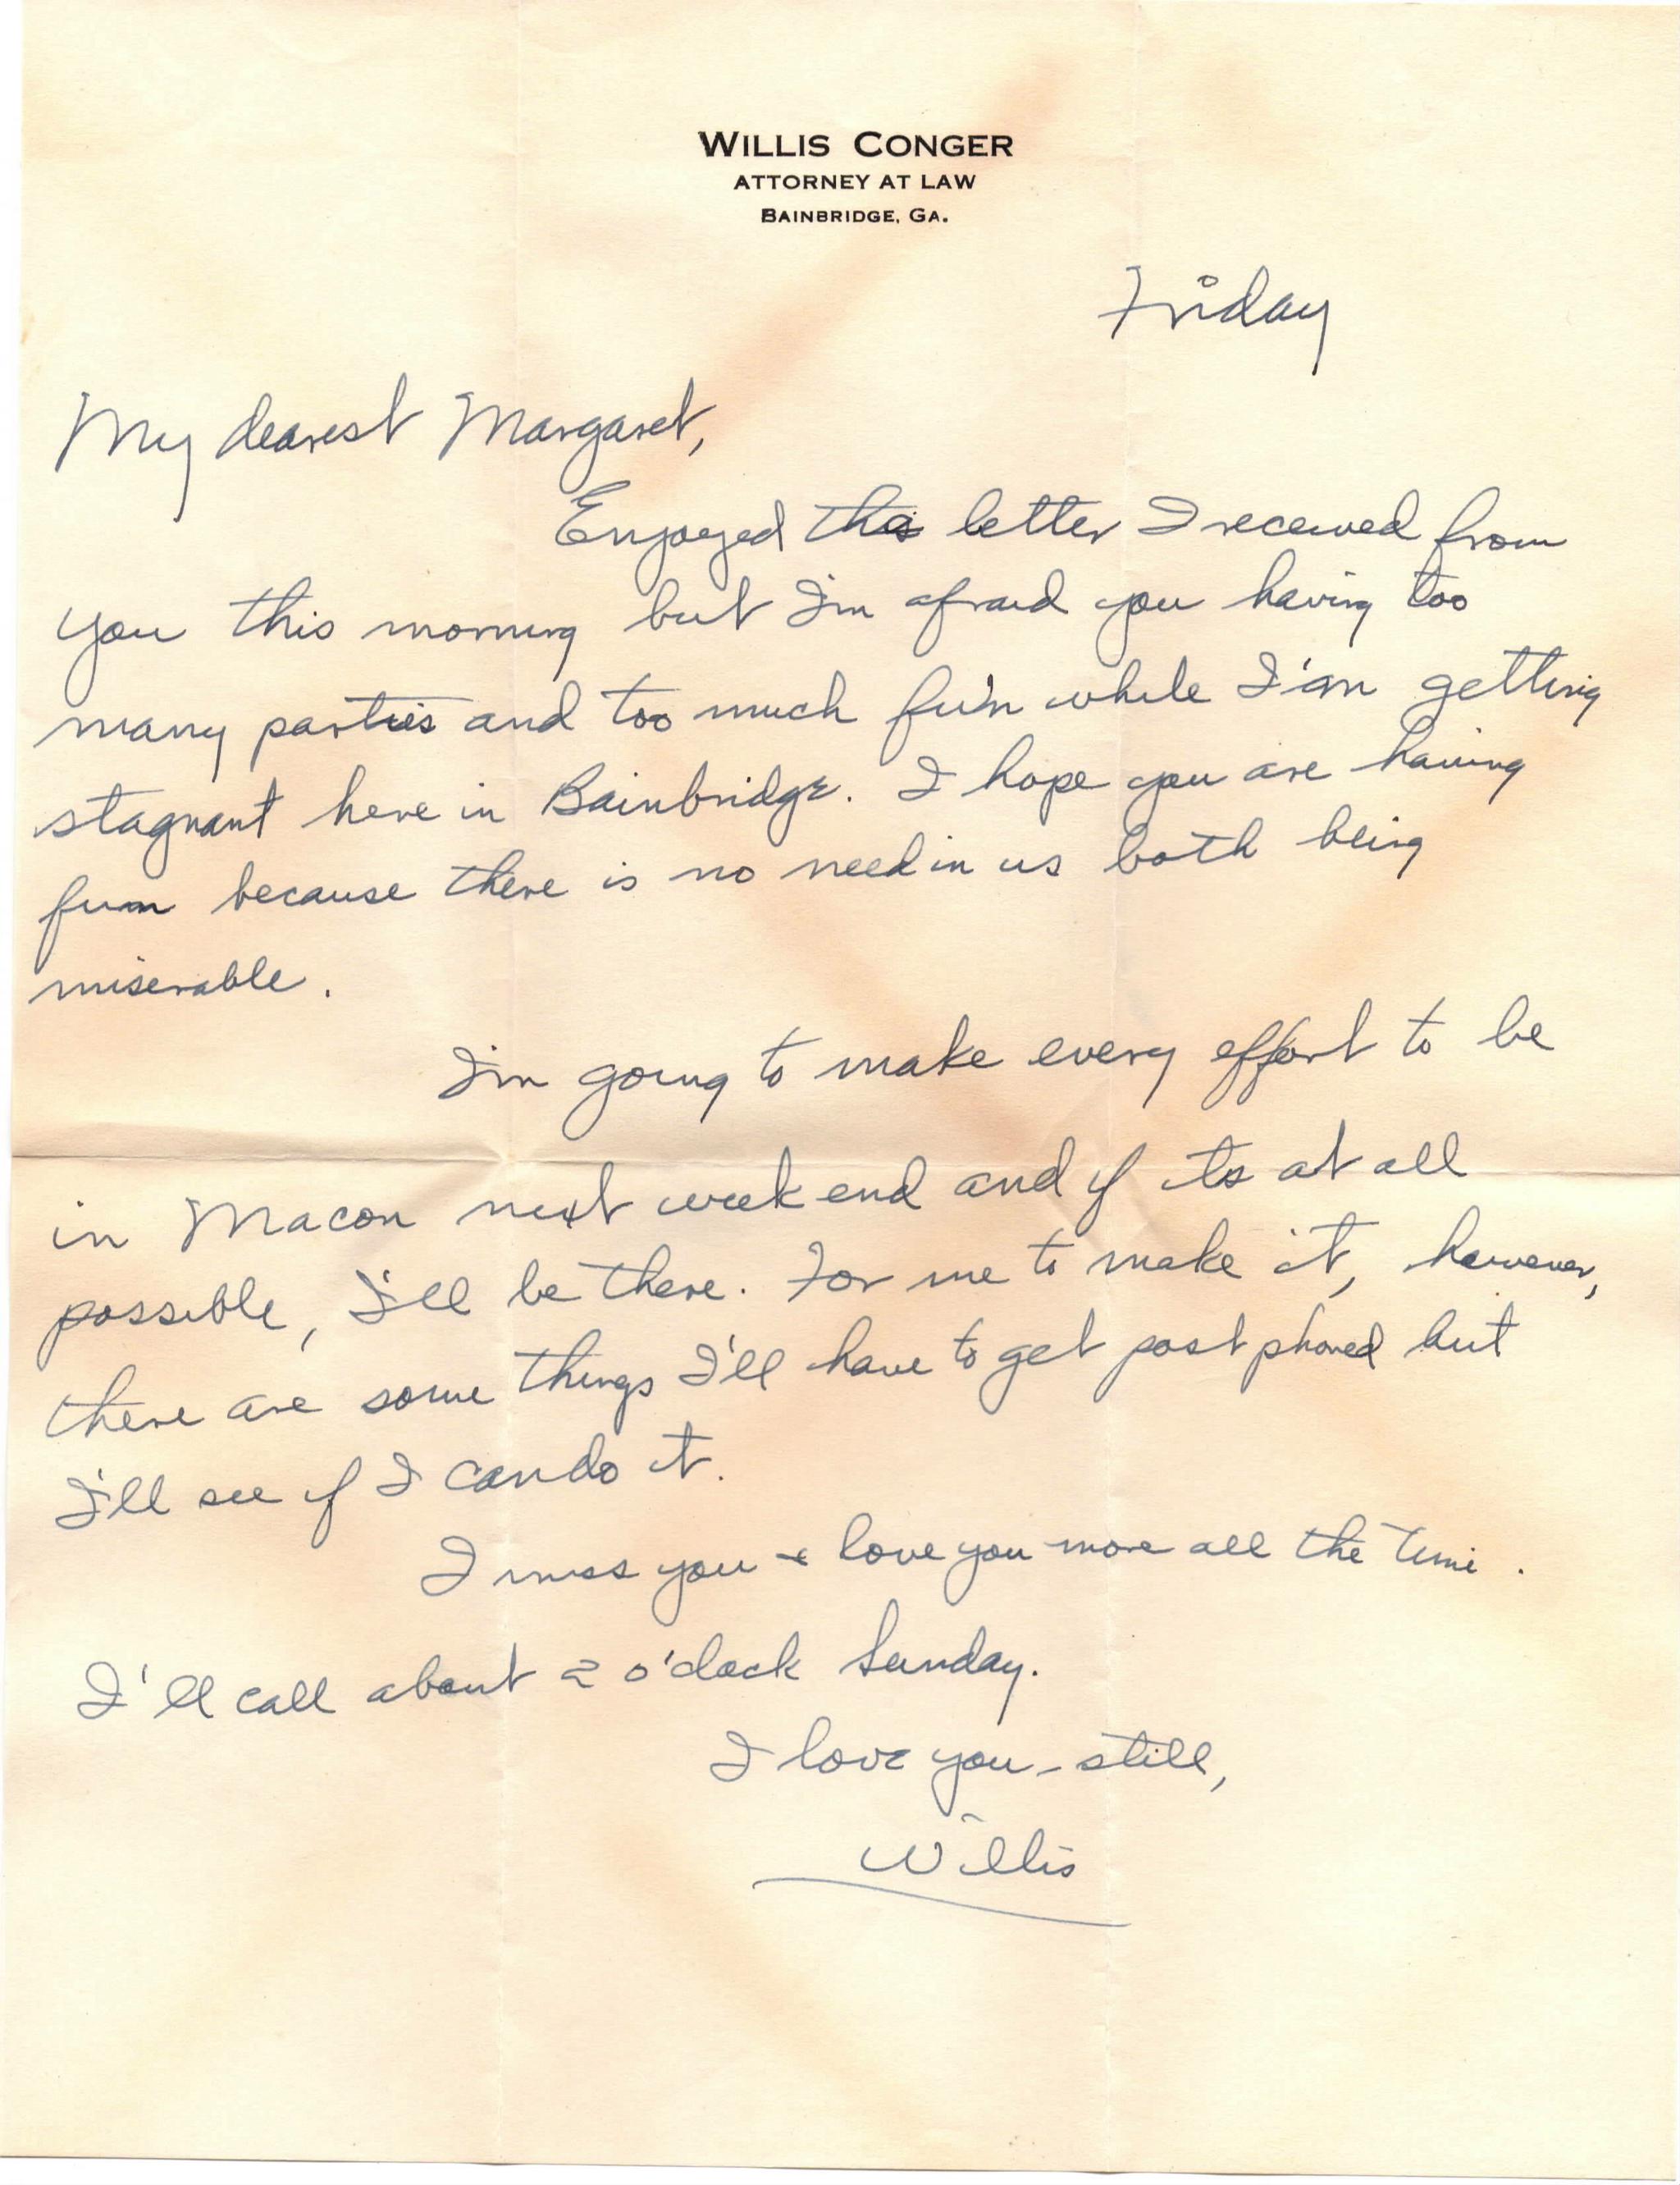 WILLIS CONGER
ATTORNEY AT LAW
BAINBRIDGE, GA.
Friday
My dearest Margaret,
Enjoyed the letter I received from
you this morning but I'm afraid you having too
many parties and too much fu'n while I'am getting
stagnant here in Bainbridge. I hope you are having
fun because there is no need in us both being
miserable.
I'm going to make every effort to be
in Macon next week end and if its at all
possible, I'll be there. For me to make it, however,
there are some things I'll have to get post phoned but
I'll see if I can do it.
I miss you & love you more all the time.
I'll call about 2 o'clock Sunday.
I love you - still,
Willis